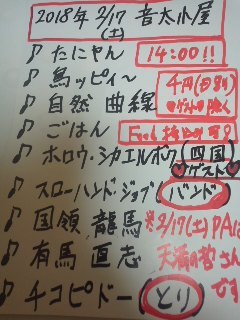 2018年 2/17 音太小屋
(土)
♪ たにやん 14:00!!
♪ 鳥ッピィ〜 千円(日割)
♪ 自然 曲線 ゲスト除く
♪ ごはん
♪ ホロウ・シカエルボク(四国)
♡ゲスト♡
♪ スローハンド・ジョブ(バンド)
♪ 国領 龍馬 2/17(土)PAは
♪ 有馬 直志 天満の哲さん
♪ チコピドー(とり) です